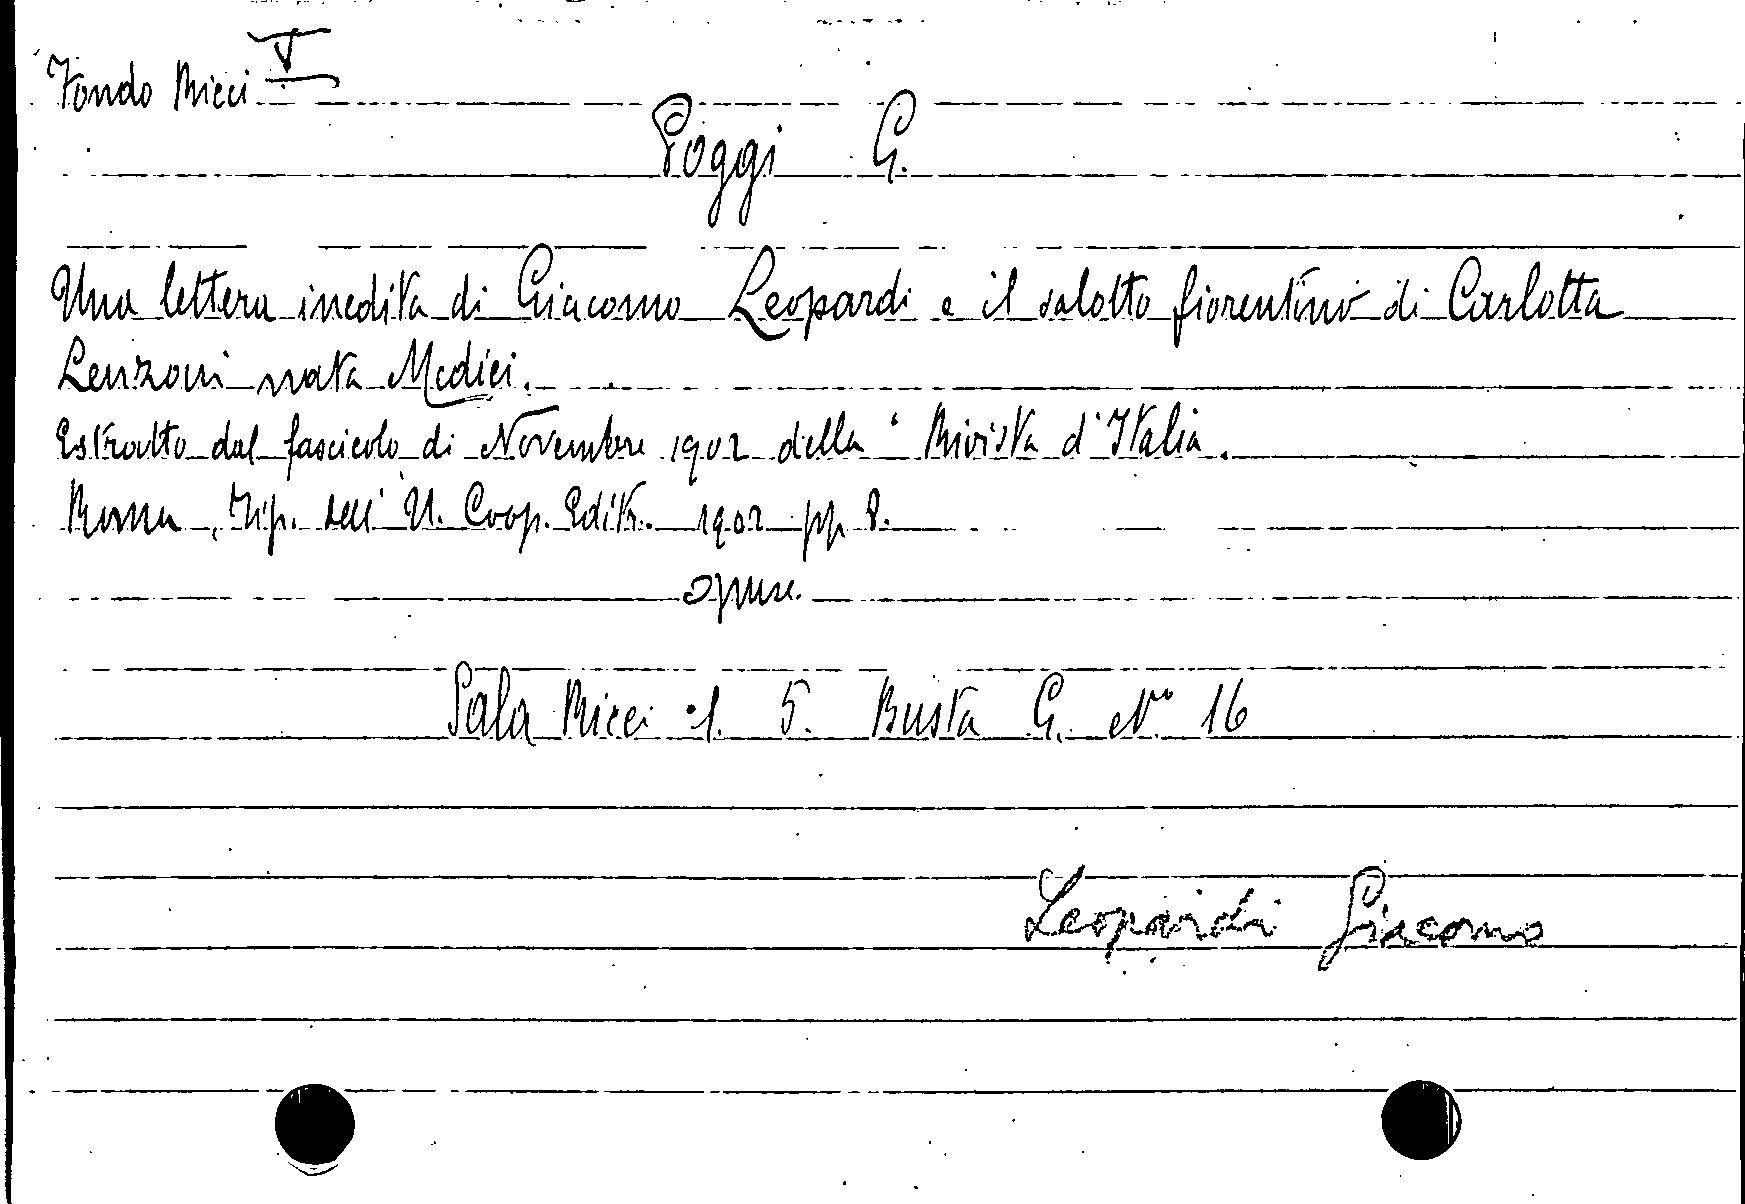 Fondo Ricci V
Poggi G.
Una lettera inedita di Giacomo Leopardi e il salotto fiorentino di Carlotta
Lenzoni nata Medici.
Estratto dal fascicolo di Novembre 1902 della "Rivista d'Italia.
Roma, Tip. dell' U. Coop. Editr. 1902 pp 8.
opusc.
Sala Ricci s. 5. Busta G. No 16
Leopardi Giacomo